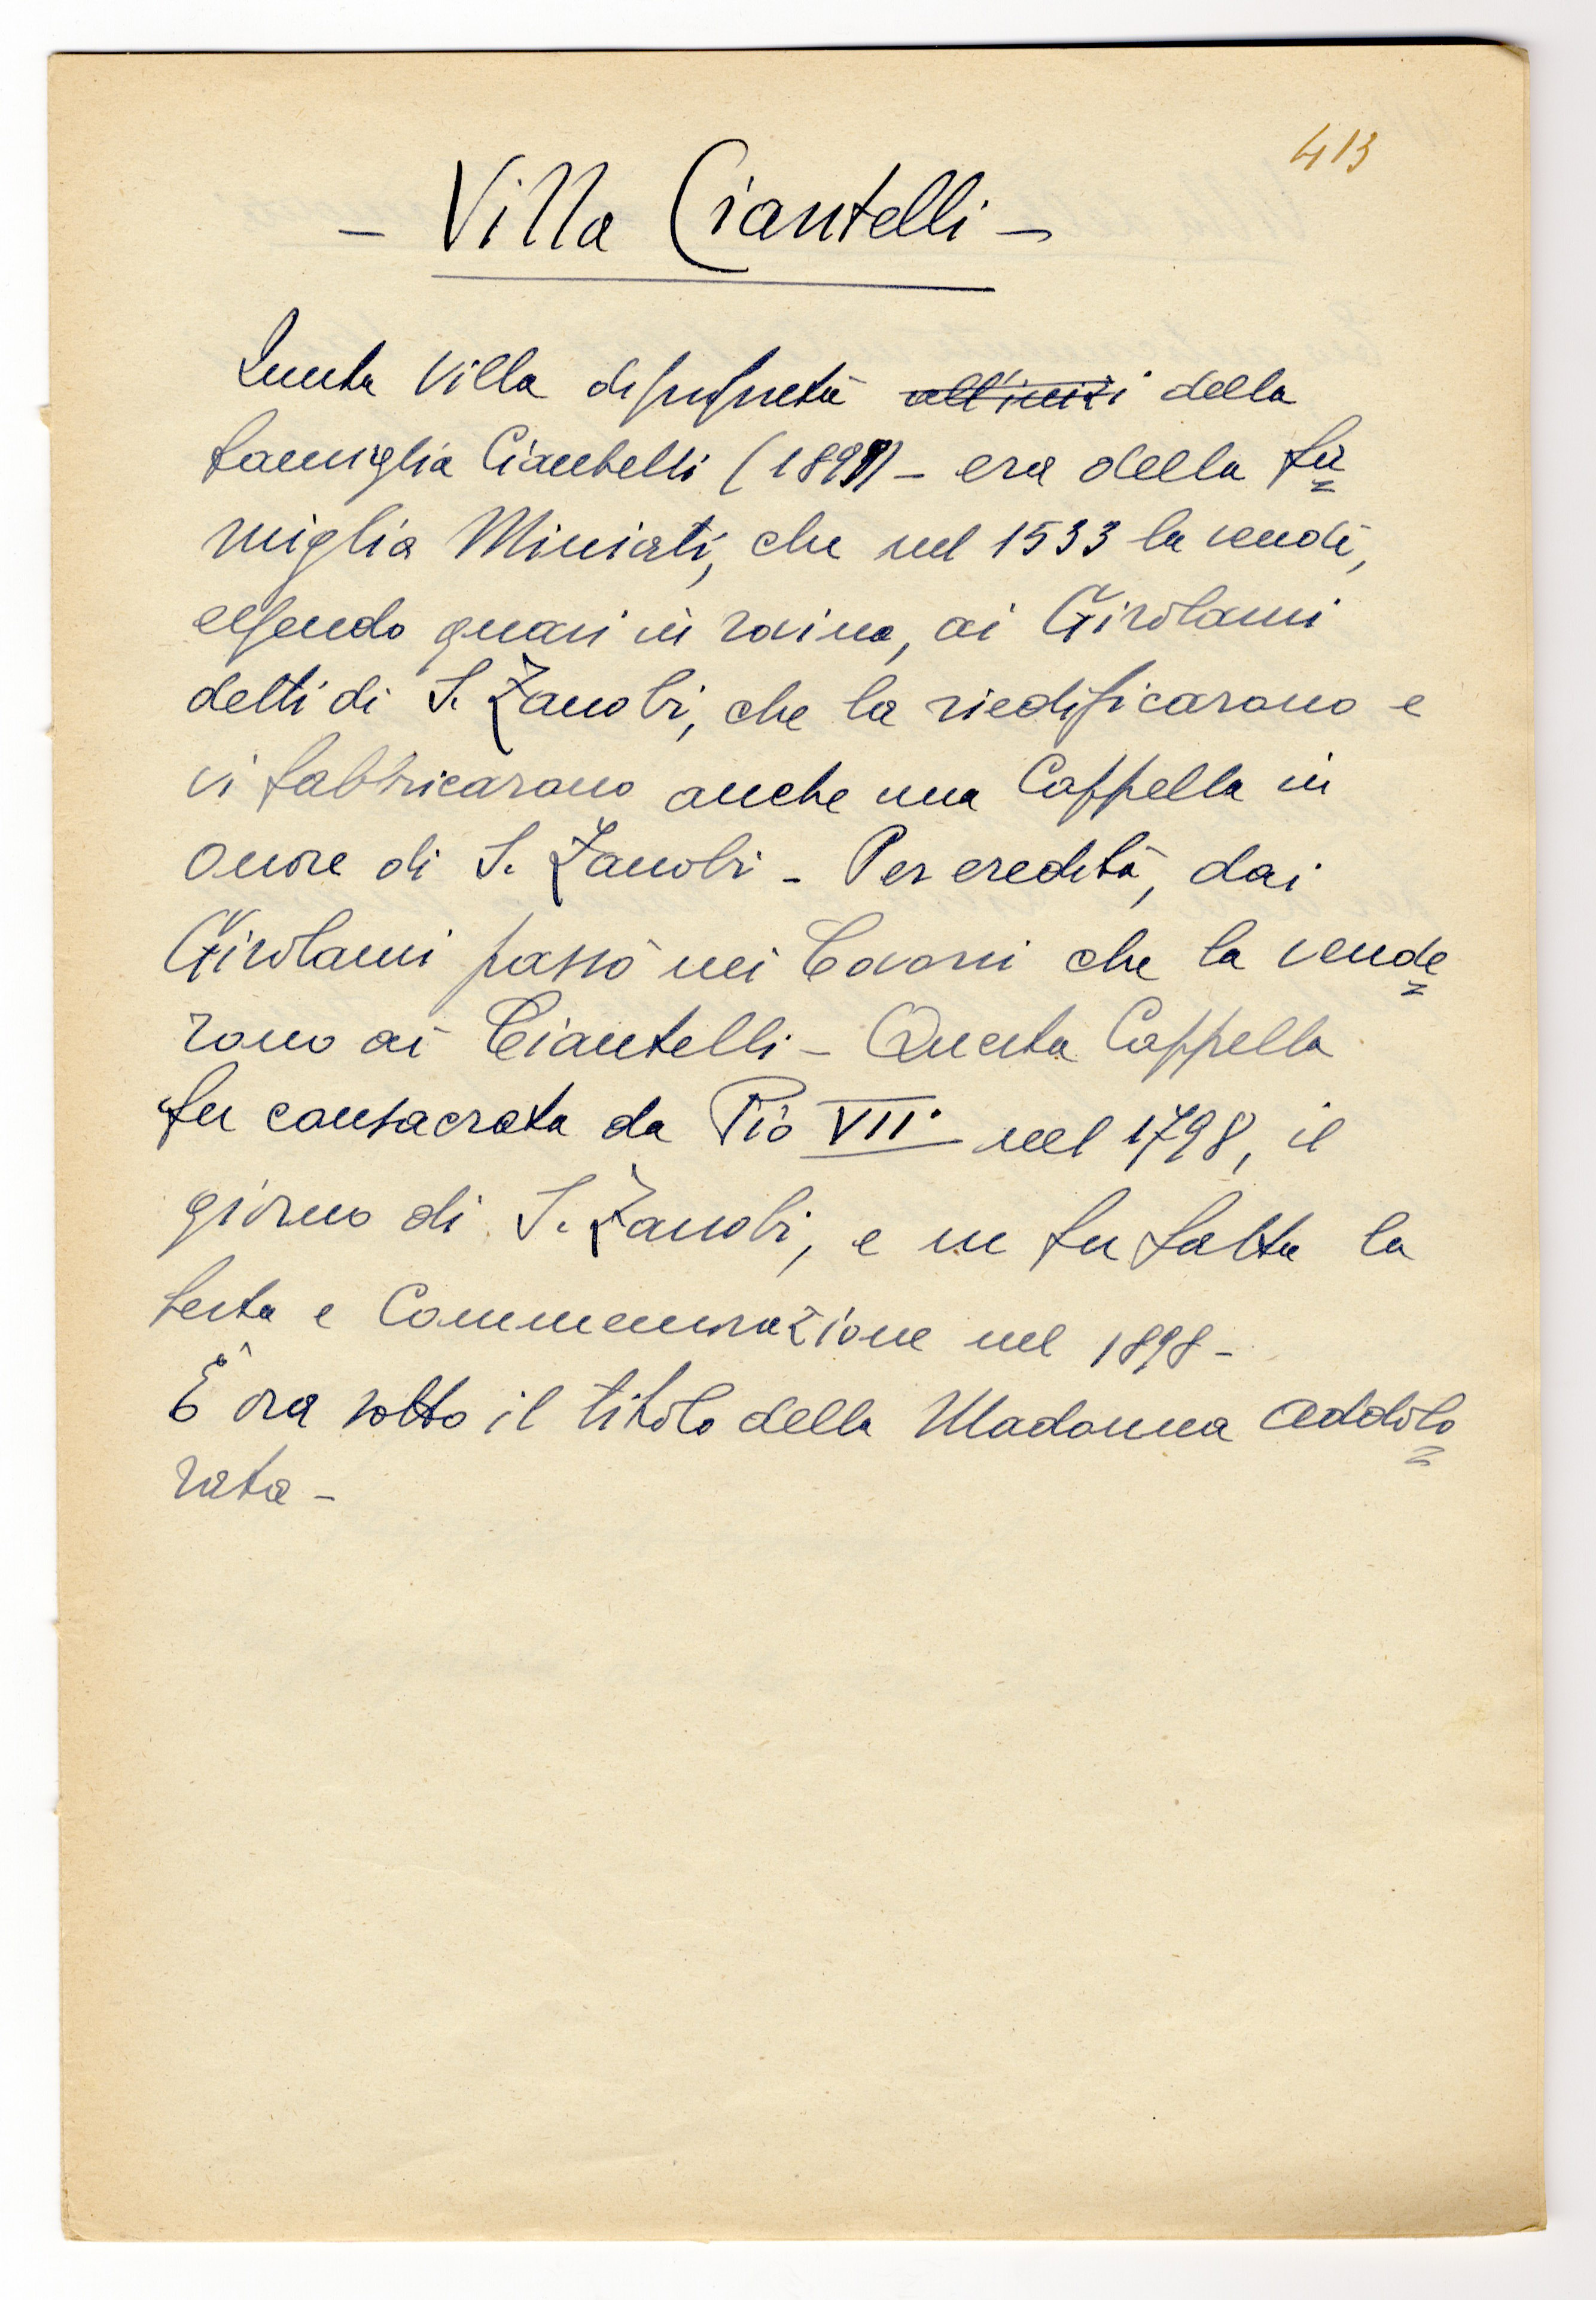 413
- Villa Ciantelli -
Questa Villa di proprietà all'inizi della
famiglia Ciantelli (1899) - era della fa=
miglia Miniati, che nel 1533 la vendè,
essendo quasi in rovina, ai Girolami
detti di S. Zanobi, che la riedificarono e
vi fabbricarono anche una Cappella in
onore di S. Zanobi - Per eredità, dai
Girolami passò nei Covoni che la vende=
rono ai Ciantelli - Questa Cappella
fu consacrata da Pio VII. nel 1798, il
giorno di S. Zanobi, e ne fu fatta la
festa e Commemorazione nel 1898 -
È ora sotto il titolo della Madonna Addolo=
rata -